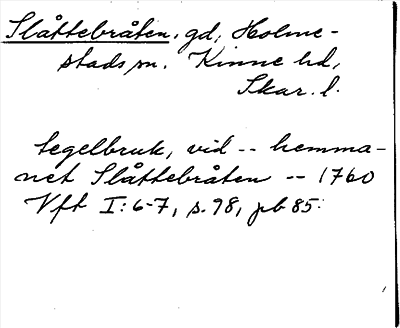 Slåttebråten, gd, Holme-
stads sn. Kinne hd,
Skar. l.
tegelbruk, vid -- hemma-
net Slåttebråten -- 1760
Vft I:6-7, s.98, pb 85.